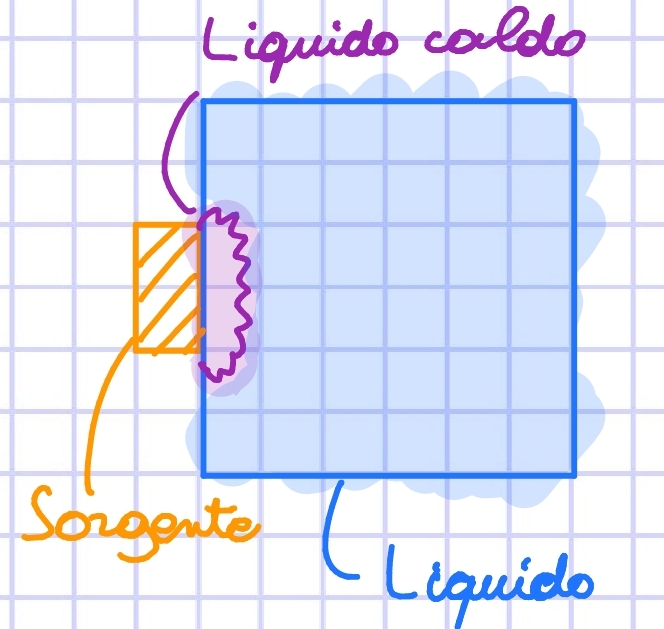 Liquido caldo
Sorgente
Liquido